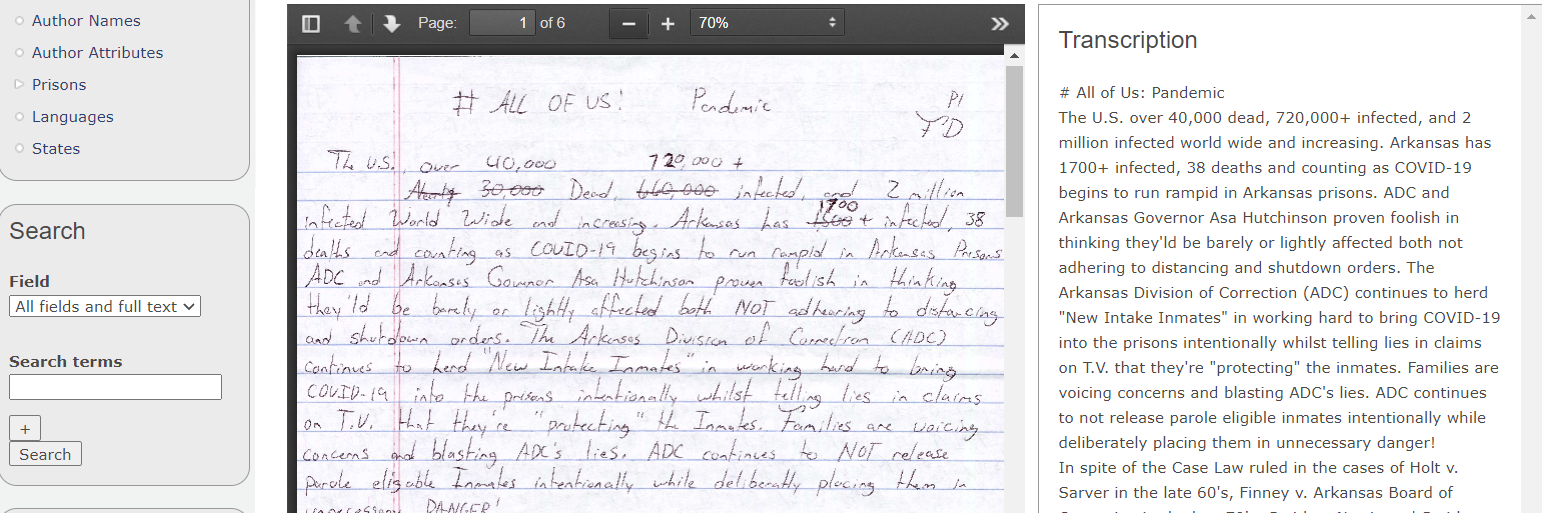 Author Names
Author Attributes
Prisons
Languages
States
Search
Field
All fields and full text
Search terms
+
Search
Page: 1 of 6
− + 70%
# ALL OF US! Pandemic P1
The U.S., over 40,000 720,000 +
Nearly 30,000 Dead, 660,000 infected, and 2 million
1700
infected World Wide and increasing. Arkansas has 1500 + infected, 38
deaths and counting as COVID-19 begins to run rampid in Arkansas Prisons
ADC and Arkansas Govenor Asa Hutchinson proven foolish in thinking
they'ld be barely or lightly affected both NOT adhearing to distancing
and shutdown orders. The Arkansas Division of Correction (ADC)
continues to herd "New Intake Inmates" in working hard to bring
COVID-19 into the prisons intentionally whilst telling lies in claims
on T.V. that they're "protecting" the Inmates. Families are voicing
concerns and blasting ADC's lies. ADC continues to NOT release
parole eligable Inmates intentionally while deliberatly placing them in
unnecessary DANGER!
Transcription
# All of Us: Pandemic
The U.S. over 40,000 dead, 720,000+ infected, and 2
million infected world wide and increasing. Arkansas has
1700+ infected, 38 deaths and counting as COVID-19
begins to run rampid in Arkansas prisons. ADC and
Arkansas Governor Asa Hutchinson proven foolish in
thinking they'ld be barely or lightly affected both not
adhering to distancing and shutdown orders. The
Arkansas Division of Correction (ADC) continues to herd
"New Intake Inmates" in working hard to bring COVID-19
into the prisons intentionally whilst telling lies in claims
on T.V. that they're "protecting" the inmates. Families are
voicing concerns and blasting ADC's lies. ADC continues
to not release parole eligible inmates intentionally while
deliberately placing them in unnecessary danger!
In spite of the Case Law ruled in the cases of Holt v.
Sarver in the late 60's, Finney v. Arkansas Board of